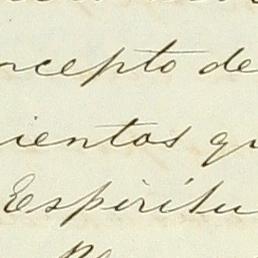 ncepto de
ientos qu
Espíritu